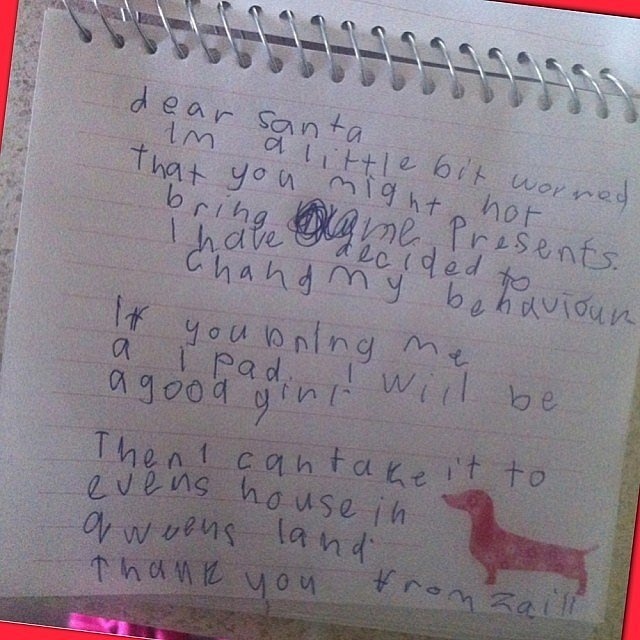 dear santa
Im a little bit worried
that you might not
bring me presents.
I have decided to
chang my behaviour
If you bring me
a i pad. I will be
a good girl
Then I can take it to
evens house in
qweens land
thank you from